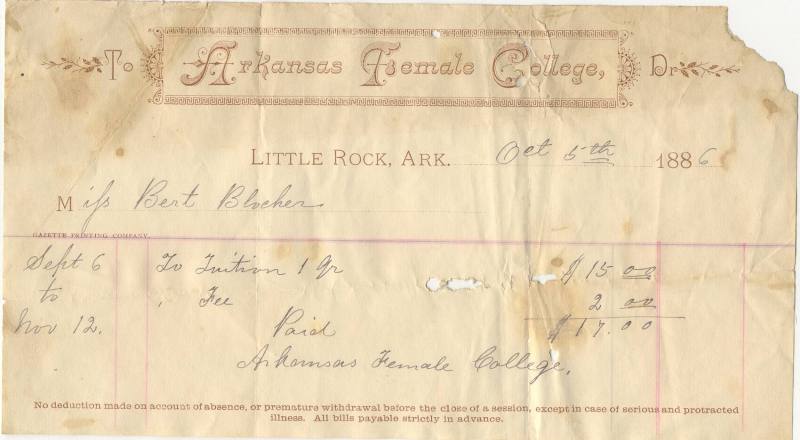 To Arkansas Female College, Dr
LITTLE ROCK, ARK. Oct 5th 1886
Miss Bert Blocher
GAZETTE PRINTING COMPANY.
Sept 6 To Tuition 1 Qr $15 00
to " Fee 2 00
Nov 12. Paid $17.00
Arkansas Female College.
No deduction made on account of absence, or premature withdrawal before the close of a session, except in case of serious and protracted
illness. All bills payable strictly in advance.